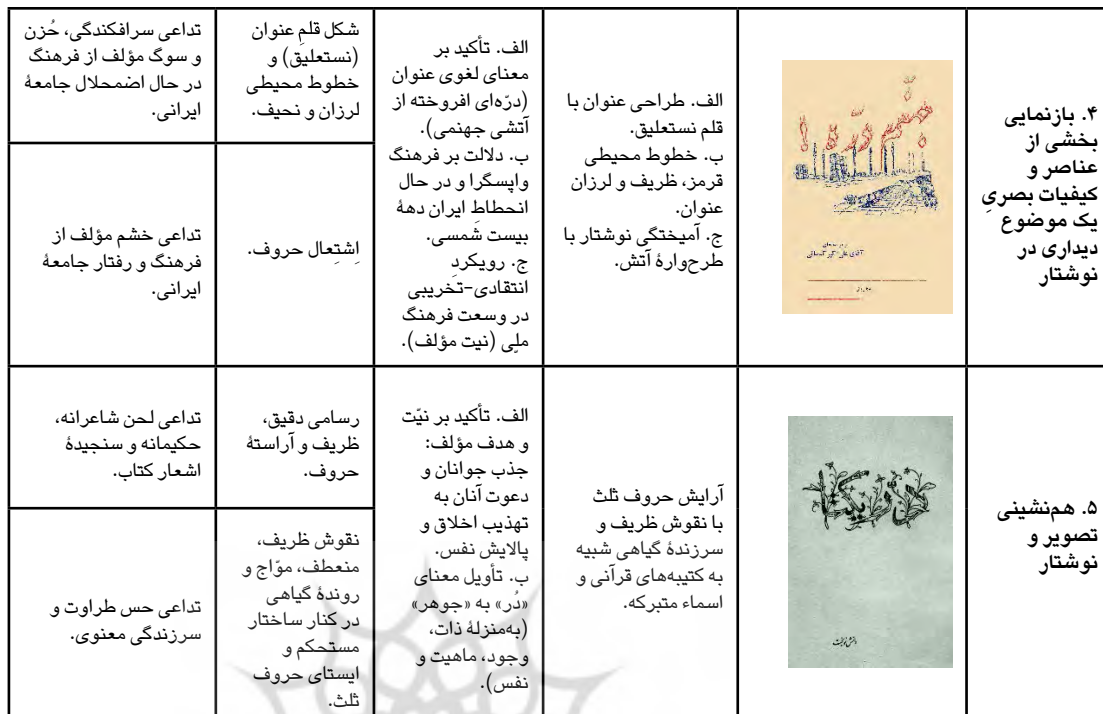 ۴. بازنمایی
بخشی از
عناصر و
کیفیات بصریِ
یک موضوع
دیداری در
نوشتار
آقای علی اکبر کسمائی
الف. طراحی عنوان با
قلم نستعلیق.
ب. خطوط محیطی
قرمز، ظریف و لرزان
عنوان.
ج. آمیختگی نوشتار با
طرح‌وارهٔ آتش.
الف. تأکید بر
معنای لغوی عنوان
(درّه‌ای افروخته از
آتشی جهنمی).
ب. دلالت بر فرهنگ
واپسگرا و در حال
انحطاطِ ایران دههٔ
بیست شمسی.
ج. رویکردِ
انتقادی-تخریبی
در وسعت فرهنگ
ملی (نیت مؤلف).
شکل قلمِ عنوان
(نستعلیق) و
خطوط محیطی
لرزان و نحیف.
تداعی سرافکندگی، حُزن
و سوگ مؤلف از فرهنگ
در حال اضمحلال جامعهٔ
ایرانی.
اِشتِعال حروف.
تداعی خشم مؤلف از
فرهنگ و رفتار جامعهٔ
ایرانی.
۵. هم‌نشینی
تصویر و
نوشتار
آرایش حروف ثلث
با نقوش ظریف و
سرزندهٔ گیاهی شبیه
به کتیبه‌های قرآنی و
اسماء متبرکه.
الف. تأکید بر نیّت
و هدف مؤلف:
جذب جوانان و
دعوت آنان به
تهذیب اخلاق و
پالایش نفس.
ب. تأویل معنای
«دُر» به «جوهر»
(به‌منزلهٔ ذات،
وجود، ماهیت و
نفس).
رسامی دقیق،
ظریف و آراستهٔ
حروف.
تداعی لحن شاعرانه،
حکیمانه و سنجیدهٔ
اشعار کتاب.
نقوش ظریف،
منعطف، موّاج و
روندهٔ گیاهی
در کنار ساختار
مستحکم و
ایستای حروف
ثلث.
تداعی حس طراوت و
سرزندگی معنوی.